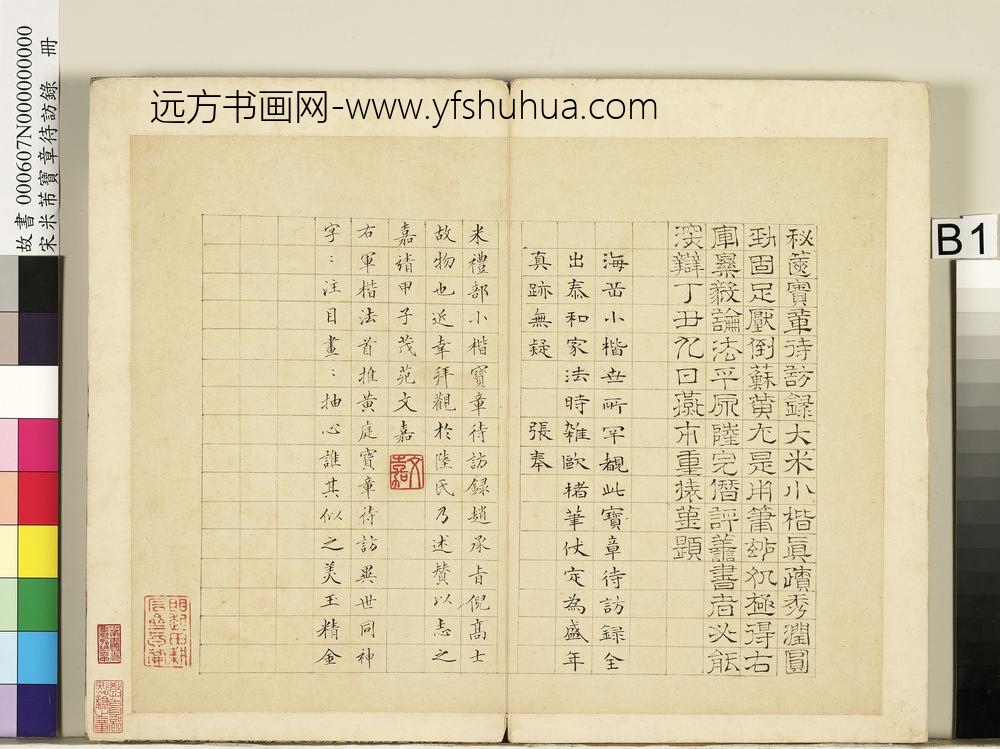 远方书画网-www.yfshuhua.com
故書000607N000000000
宋米芾寶章待訪錄 冊
B1
秘篋寶章待訪録大米小楷真蹟秀潤圓
勁固足壓倒蘇黄尤是用筆妙処極得右
軍樂毅論法平原陸完僭評善書者必能
深辯丁丑九日燕市重
題
海岳小楷世所罕覩此寶章待訪録全
出泰和家法時雜歐褚筆伏定為盛年
真跡無疑 張奉
米禮部小楷寶章待訪録趙承旨倪高士
故物也近幸拜觀於陸氏乃述贊以志之
嘉靖甲子茂苑文嘉
文嘉
右軍楷法首推黄庭寶章待訪異世同神
字：注目畫：抽心誰其似之美玉精金